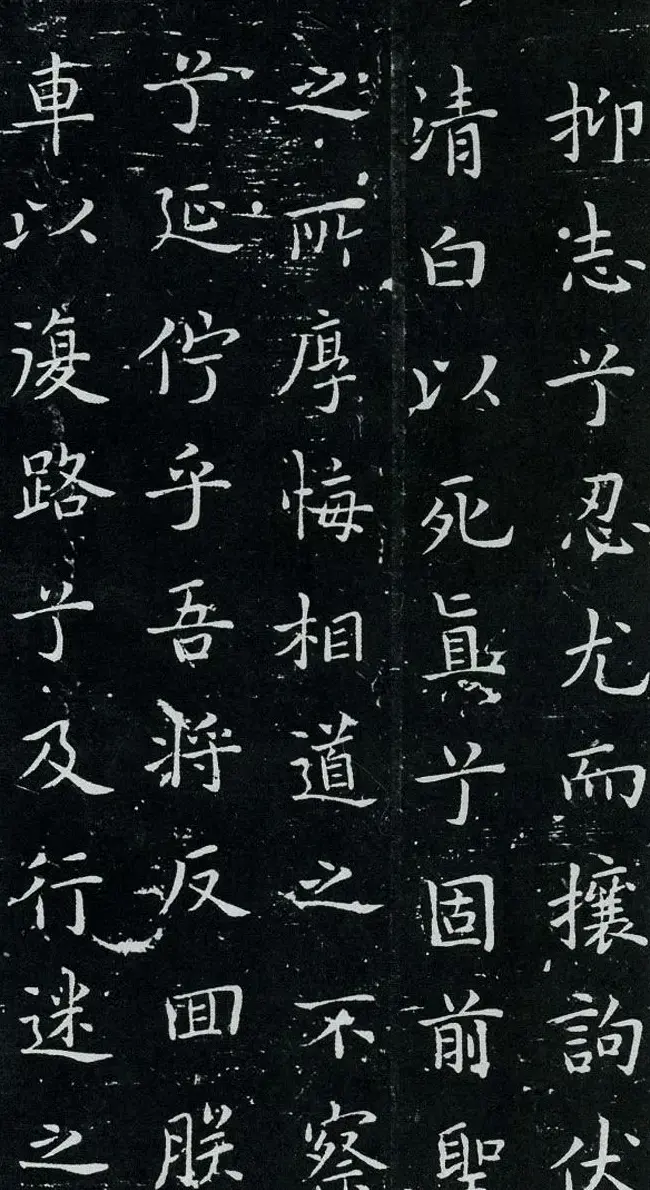 抑志兮忍尤而攘訽伏
清白以死直兮固前聖
之所厚悔相道之不察
兮延佇乎吾將反囬朕
車以復路兮及行迷之